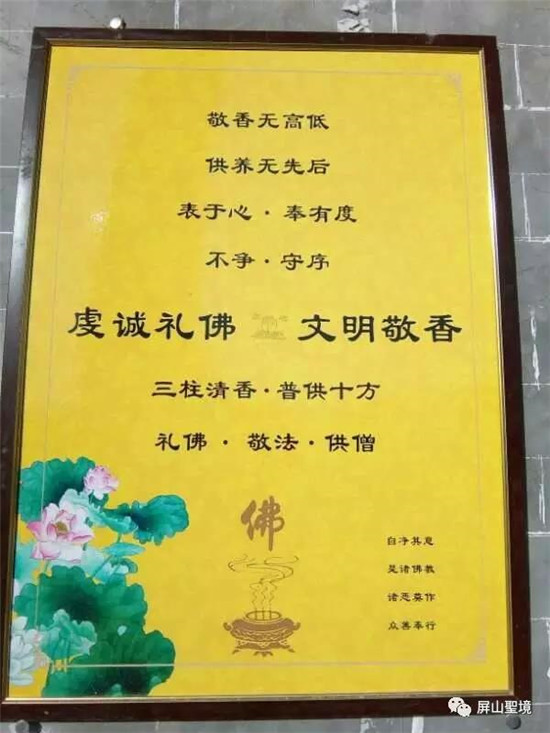 敬香无高低
供养无先后
表于心·奉有度
不争·守序
虔诚礼佛 文明敬香
三柱清香·普供十方
礼佛·敬法·供僧
佛
自净其意
是诸佛教
诸恶莫作
众善奉行
屏山聖境